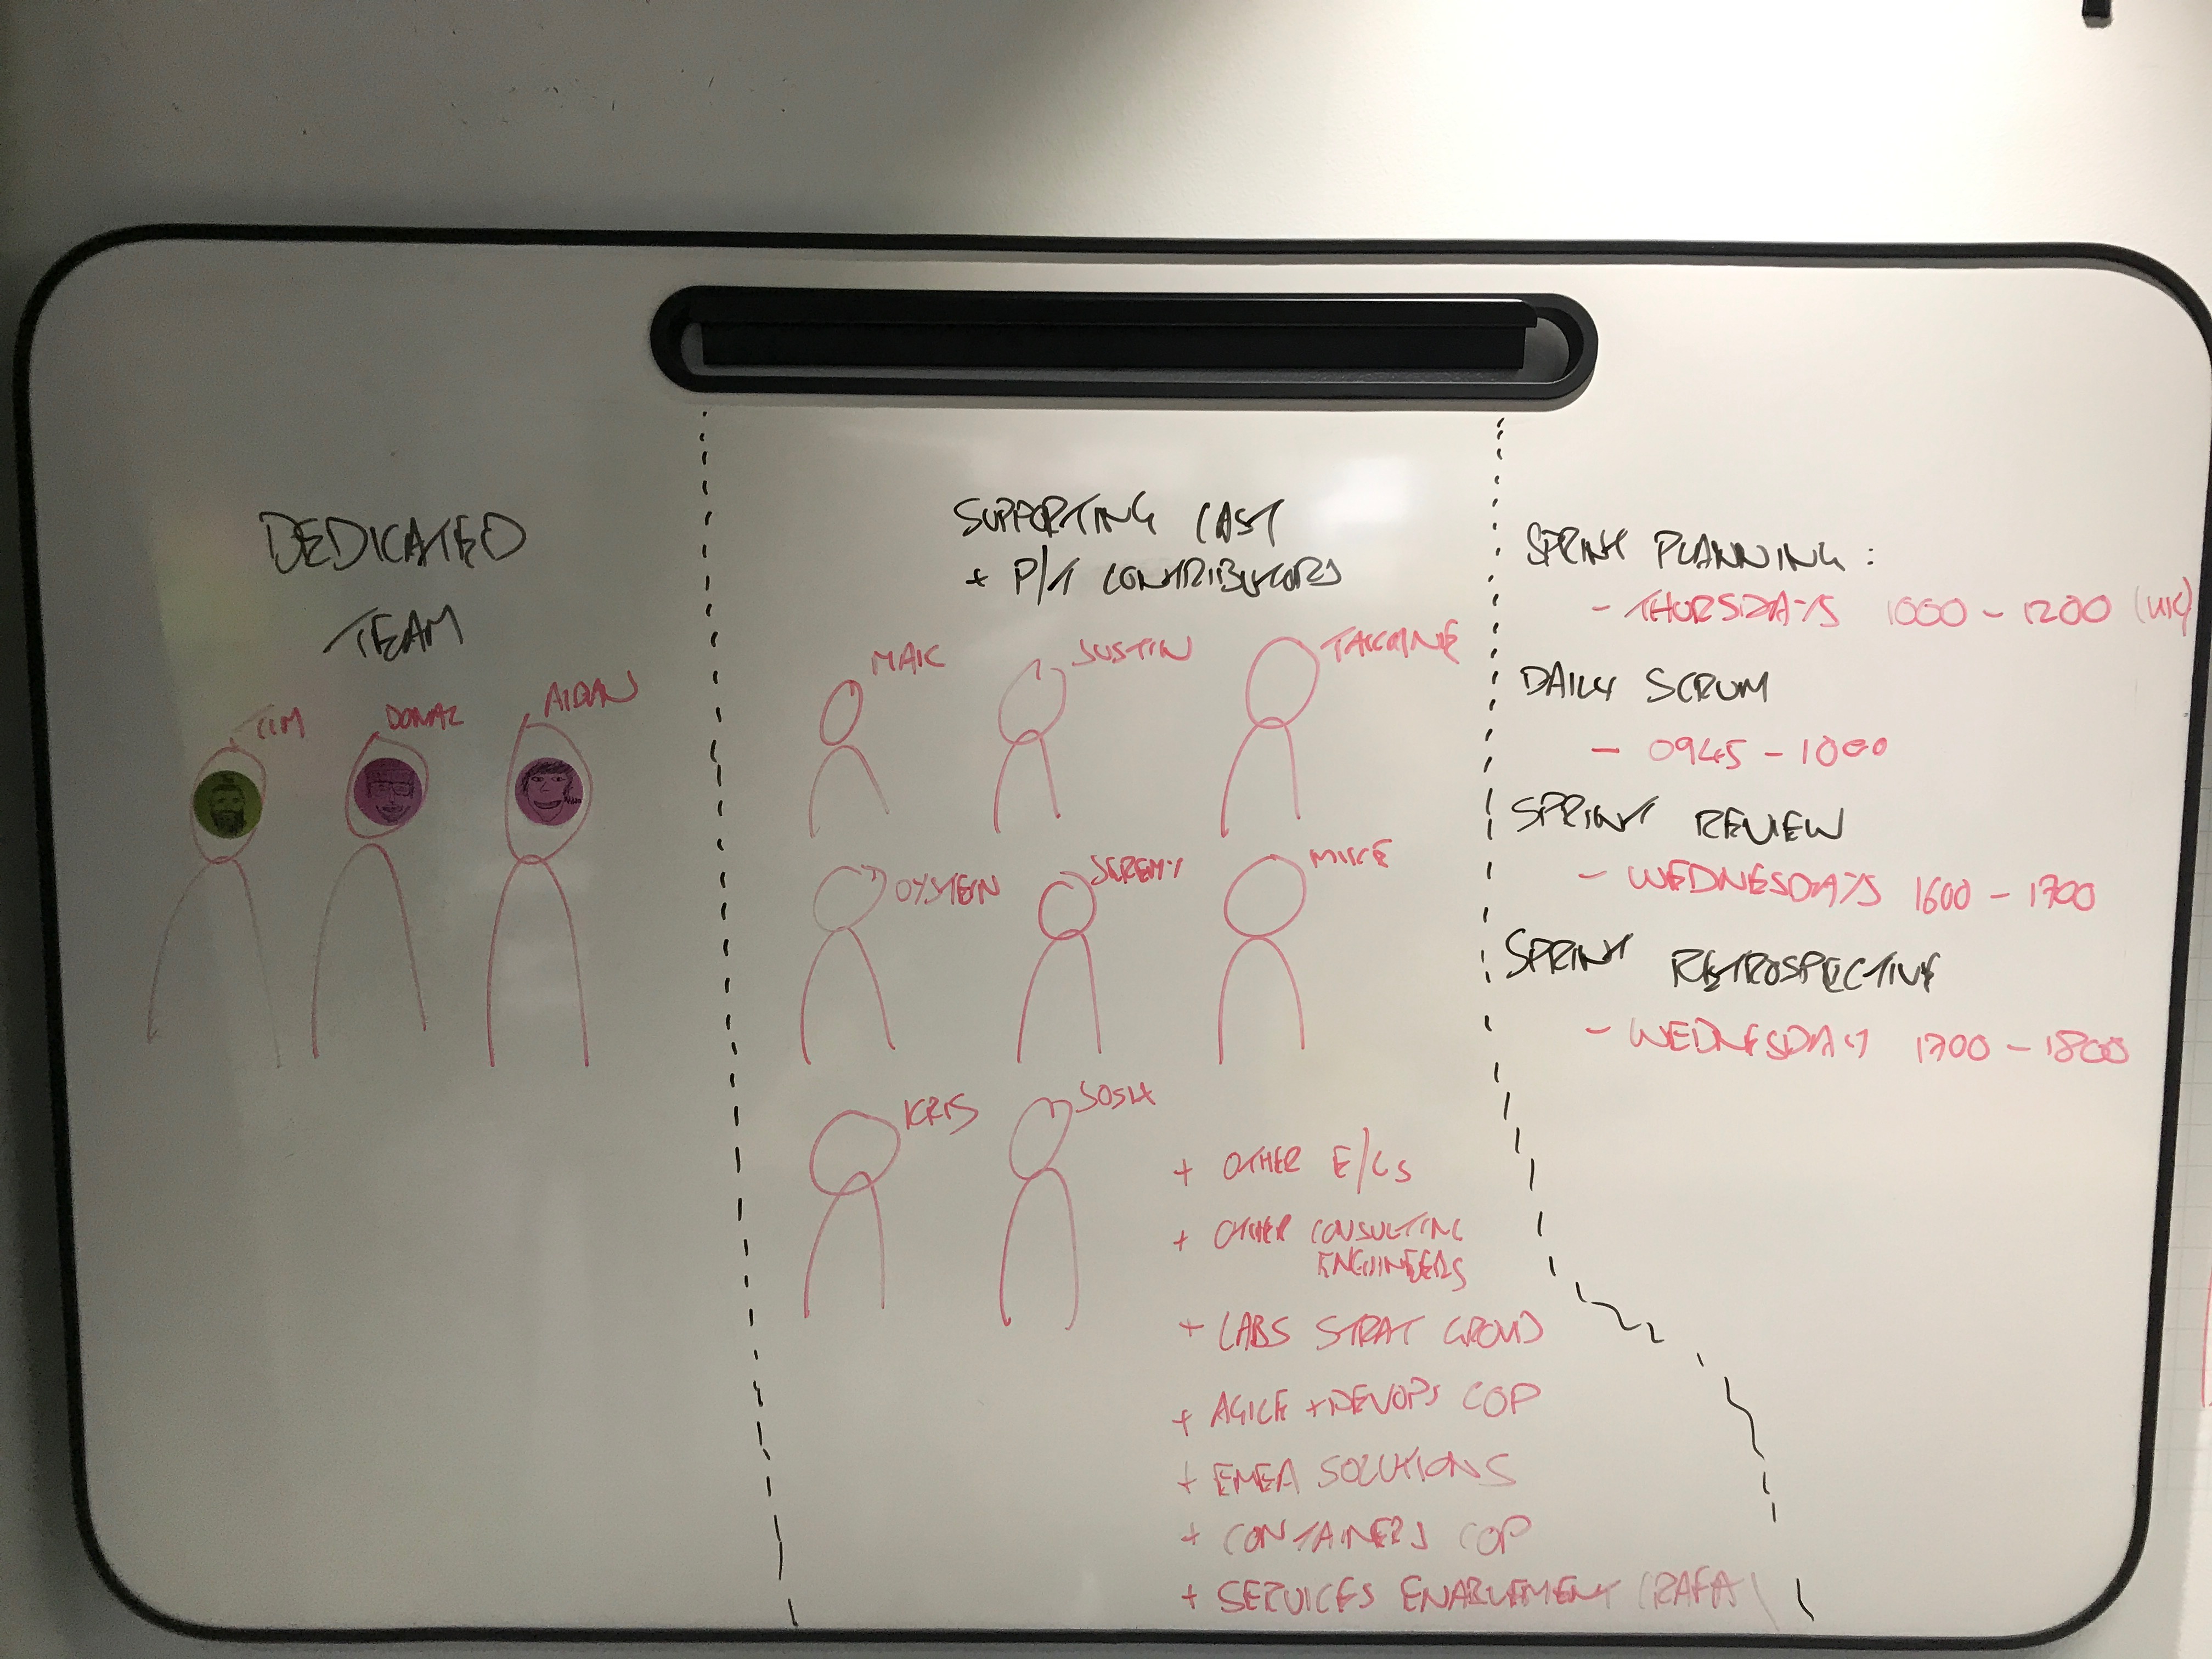 DEDICATED
TEAM
TIM
DONAL
AIDAN
SUPPORTING CAST
+ P/T CONTRIBUTORS
JUSTIN
OYSTEIN
JEREMY
MIKE
KRIS
JOSH
+ OTHER E/LS
+ OTHER CONSULTING
ENGINEERS
+ LABS STRAT GROUP
+ AGILE + DEVOPS COP
+ EMEA SOLUTIONS
+ CONTAINERS COP
+ SERVICES ENABLEMENT (RAFA)
SPRINT PLANNING :
- THURSDAYS 1000 - 1200 (UK)
DAILY SCRUM
- 0945 - 1000
SPRINT REVIEW
- WEDNESDAYS 1600 - 1700
SPRINT RETROSPECTIVE
- WEDNESDAYS 1700 - 1800